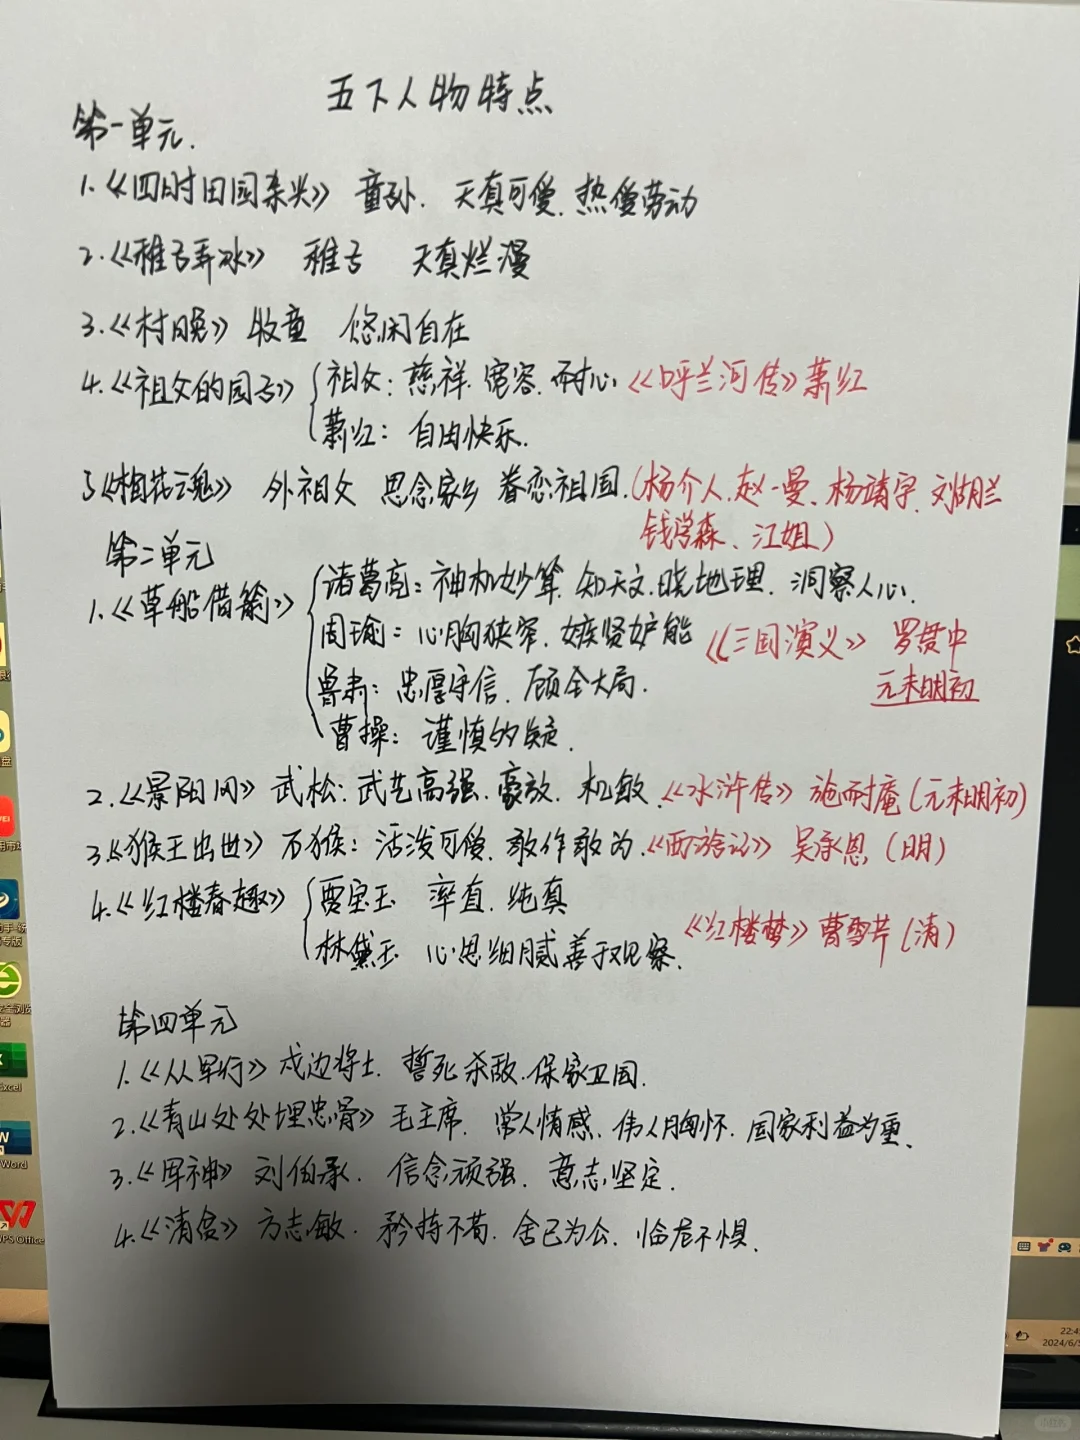 五下人物特点
第一单元.
1.《四时田园杂兴》 童孙. 天真可爱. 热爱劳动
2.《稚子弄冰》 稚子 天真烂漫
3.《村晚》 牧童 悠闲自在
4.《祖父的园子》 祖父: 慈祥. 宽容. 耐心.《呼兰河传》萧红
萧红: 自由快乐.
5《梅花魂》 外祖父 思念家乡 眷恋祖国.(杨介人.赵一曼、杨靖宇.刘胡兰
钱学森、江姐)
第二单元
1.《草船借箭》 诸葛亮: 神机妙算. 知天文.晓地理. 洞察人心.
周瑜: 心胸狭窄. 嫉贤妒能 《三国演义》 罗贯中
鲁肃: 忠厚守信. 顾全大局. 元末明初
曹操: 谨慎多疑.
2.《景阳冈》 武松: 武艺高强. 豪放. 机敏.《水浒传》 施耐庵(元末明初)
3《猴王出世》 石猴: 活泼可爱. 敢作敢为.《西游记》 吴承恩 (明)
4.《红楼春趣》 贾宝玉 率直. 纯真
林黛玉 心思细腻善于观察. 《红楼梦》曹雪芹(清)
第四单元
1.《从军行》 戍边将士. 誓死杀敌.保家卫国.
2.《青山处处埋忠骨》 毛主席. 常人情感. 伟人胸怀. 国家利益为重.
3.《军神》 刘伯承. 信念顽强. 意志坚定.
4.《清贫》 方志敏. 矜持不苟. 舍己为公. 临危不惧.
Excel
Word
WPS Office
2024/6/